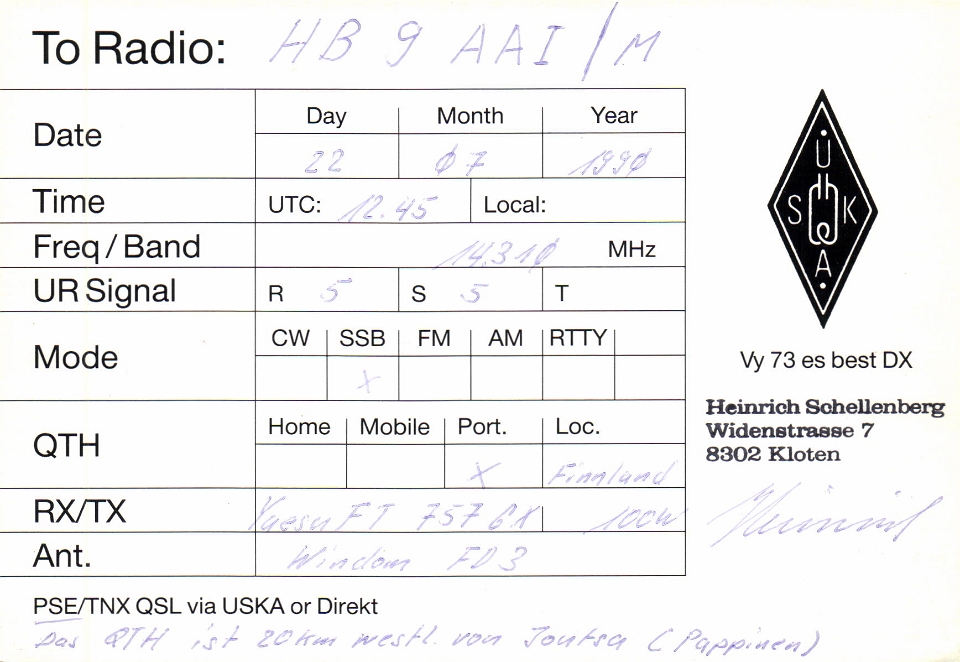 To Radio: HB 9 AAI / M
Date
Day Month Year
22 Ø7 199Ø
Time UTC: 12.45 Local:
Freq / Band 14.31Ø MHz
UR Signal R 5 S 5 T
Mode
CW SSB FM AM RTTY
X
QTH
Home Mobile Port. Loc.
X Finnland
RX/TX Yaesu FT 757 GX 100W
Ant. Windom FD3
PSE/TNX QSL via USKA or Direkt
Das QTH ist 20km westl. von Joutsa (Pappinen)
U
S K
A
Vy 73 es best DX
Heinrich Schellenberg
Widenstrasse 7
8302 Kloten
Heinrich